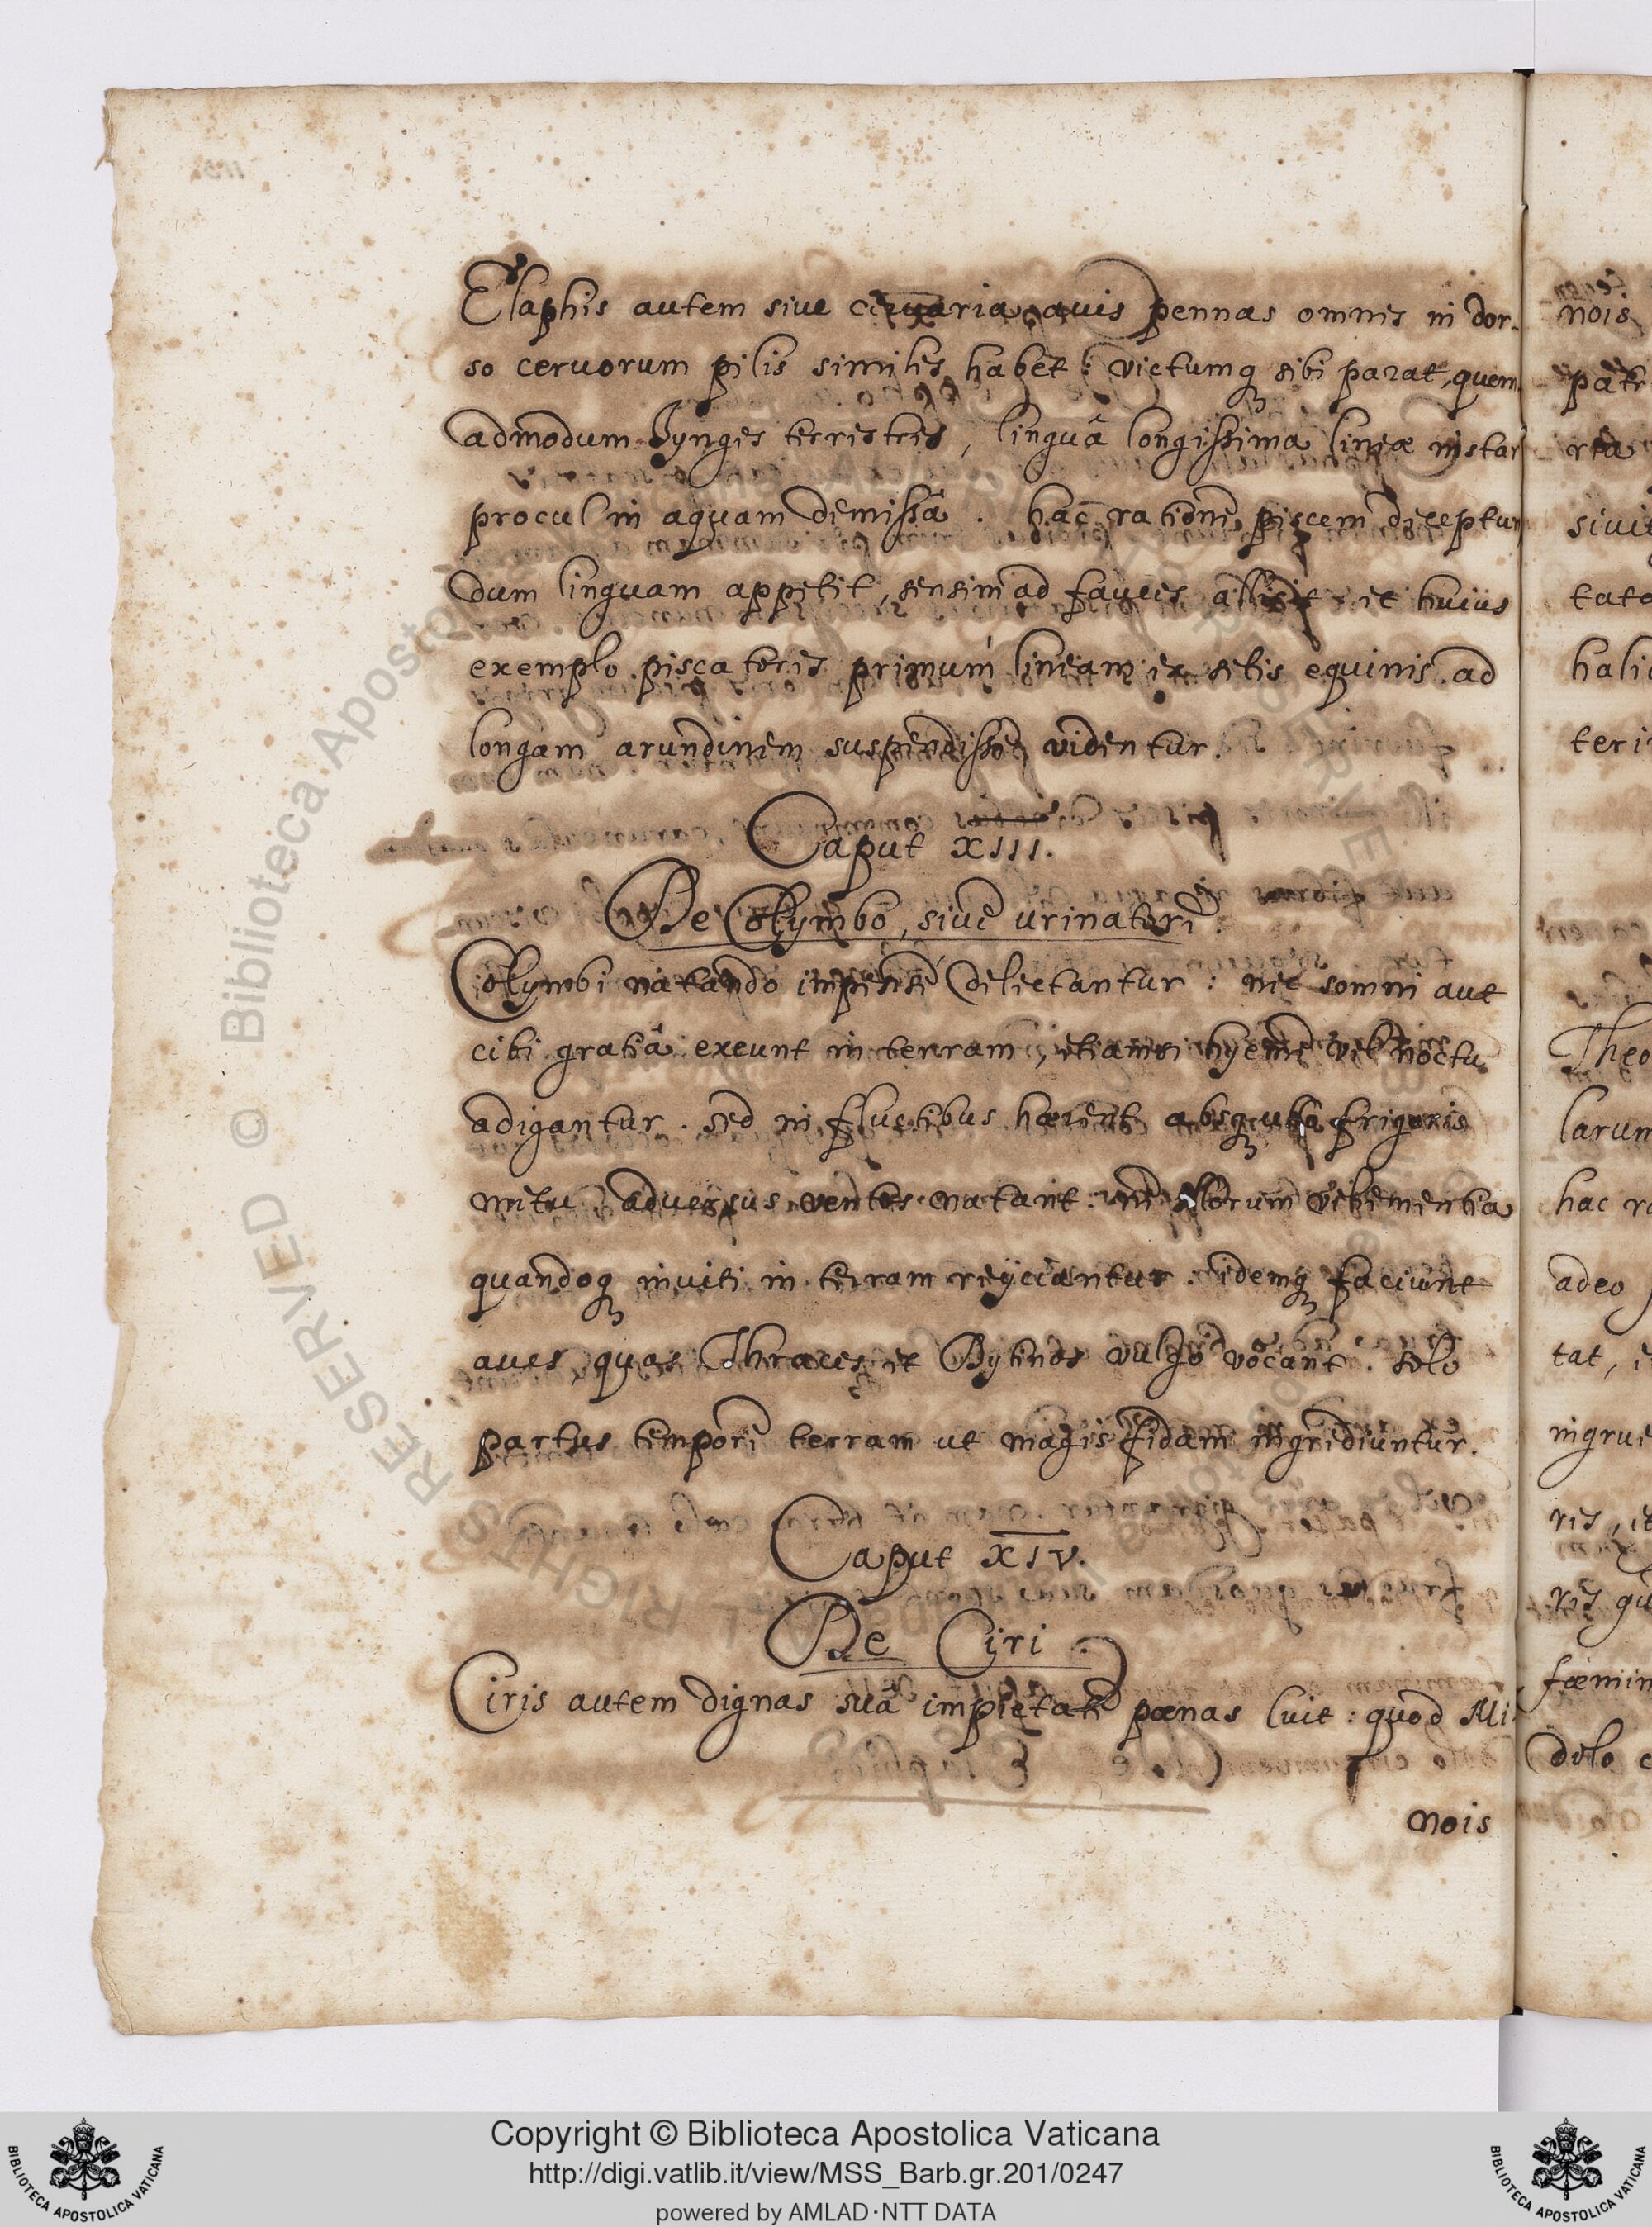 Elaphis autem sive cervaria avis pennas omnes in dor-
so cervorum pilis similes habet: victumq sibi parat, quem
admodum Jynges terrestres, linguâ longissima lineæ instar
procul in aquam demissâ. hac ratione piscem deceptum
dum linguam appetit, sensim ad fauces allicit et huius
exemplo piscatores primum lineam ex setis equinis ad
longam arundinem suspendisse videntur.
Caput XIII.
De Colymbo, sive urinatore.
Colymbi natando impense delectantur: nec somni aut
cibi gratiâ exeunt in terram, etiamsi hyeme vel noctu
adigantur. sed in fluctibus hærent absq ullo frigoris
metu adversus ventos natant. ne illorum vehementia
quandoq inviti in terram reijciantur. idemq faciunt
aves, quas Thraces et Bytinos vulgo vocant. solo
partus tempore terram ut magis fidam ingrediuntur.
Caput XIV.
De Ciri.
Ciris autem dignas suâ impietate pœnas luit: quod Mi-
nois
nois
patr
ria
sivit
tato
hali
teri
Theo
larum
hac ra
adeo
tat, e
ingrue
ris, et
ris qu
fœmin
dolo c
Copyright © Biblioteca Apostolica Vaticana
http://digi.vatlib.it/view/MSS_Barb.gr.201/0247
powered by AMLAD·NTT DATA
BIBLIOTECA APOSTOLICA VATICANA
BIBLIOTECA APOSTOLICA VATICANA